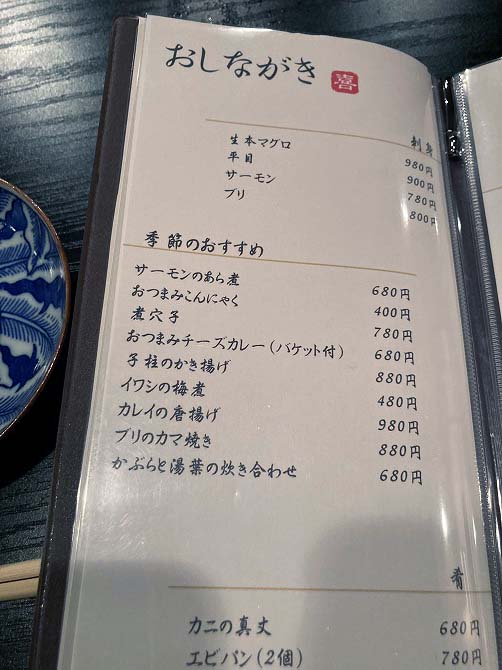 おしながき 喜
刺身
生本マグロ 980円
平目 900円
サーモン 780円
ブリ 800円
季節のおすすめ
サーモンのあら煮 680円
おつまみこんにゃく 400円
煮穴子 780円
おつまみチーズカレー(バケット付) 680円
子柱のかき揚げ 880円
イワシの梅煮 480円
カレイの唐揚げ 980円
ブリのカマ焼き 880円
かぶらと湯葉の炊き合わせ 680円
肴
カニの真丈 680円
エビパン(2個) 780円